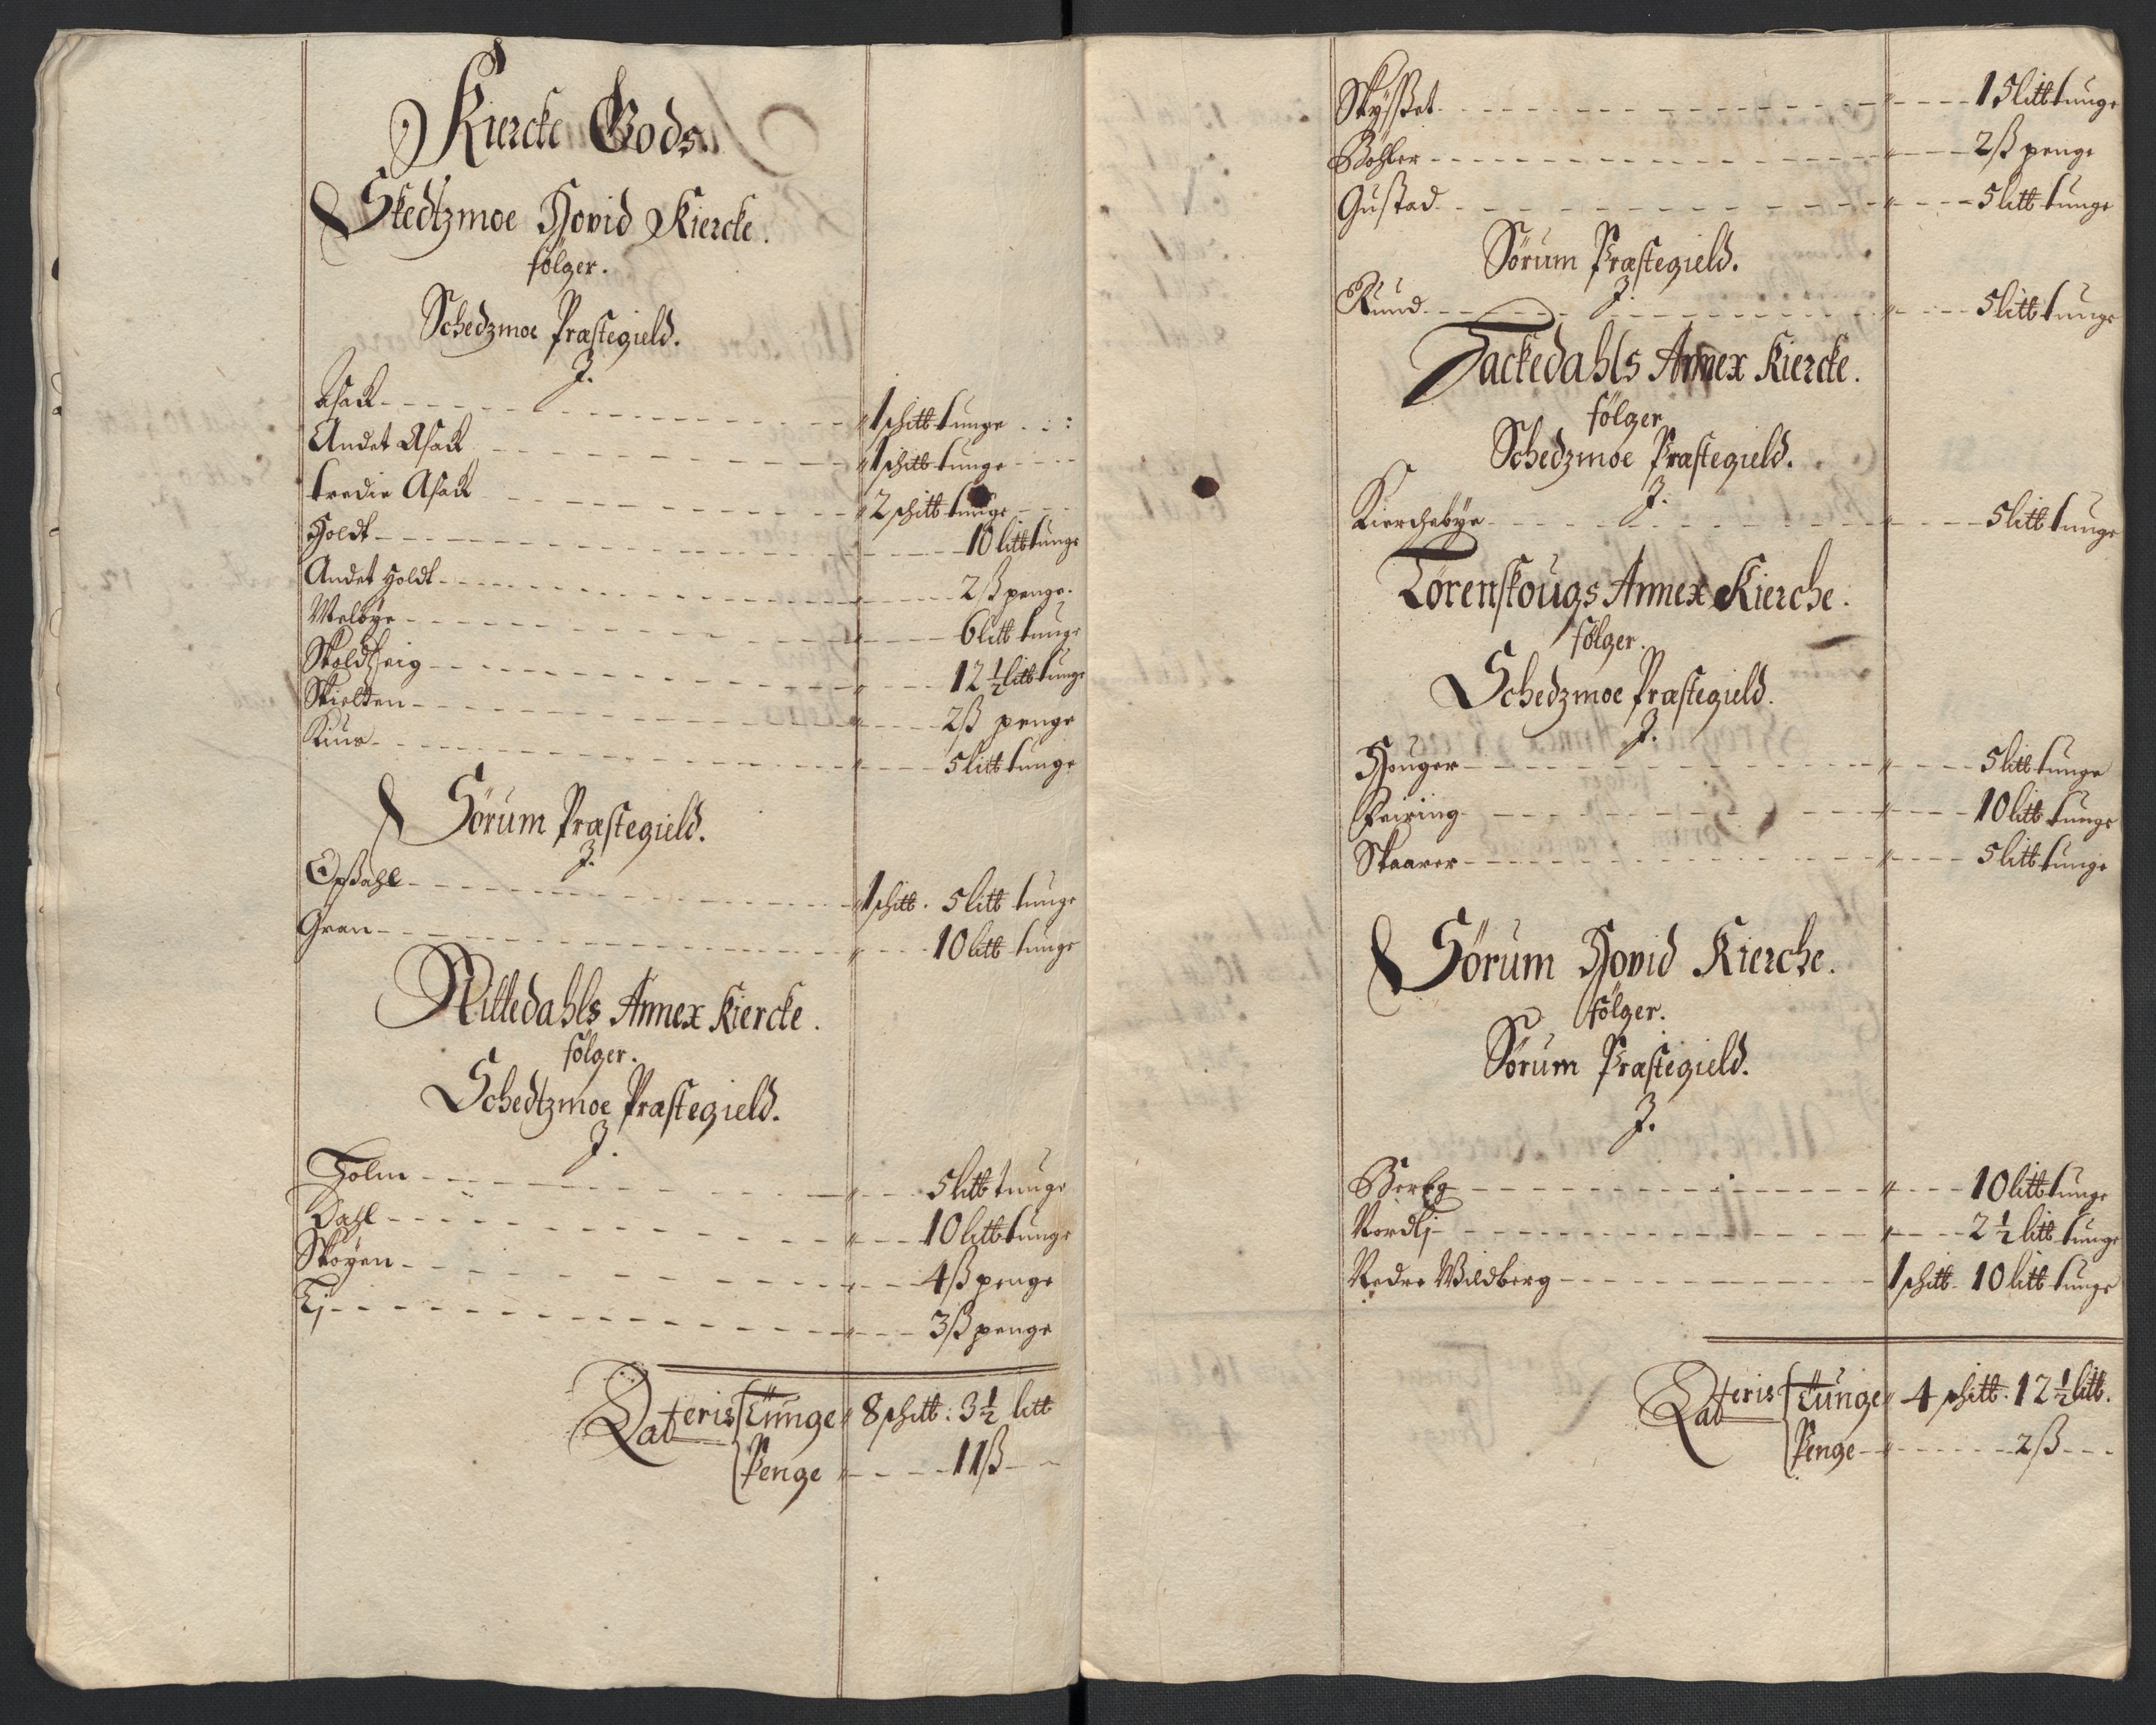 Kiercke Gods.
Skedtzmoe Hovid Kiercke.
følger.
Schedzmoe Præstegield.
J.
Asack 1 schitt tunge
Andet Asack 1 schitt tunge
tredie Asack 2 schitt tunge
Holdt 10 litt tunge
Andet Holdt 2 ß penge.
Melbye 6 litt tunge
12 ½ litt tunge
Skielten 2 ß penge
Kius 5 litt tunge
Sørum Præstegield.
J.
Opsahl 1 schitt. 5 litt tunge
Gran 10 litt tunge
Nittedahls Annex Kiercke.
følger.
Schedtzmoe Præstegield.
J.
Holm 5 litt tunge
Dahl 10 litt tunge
Skøyen 4 ß penge
Lj 3 ß penge
Lateris Tunge 8 schitt: 3 ½ litt
Penge 11 ß
Skysset 15 litt tunge
Bøhler 2 ß penge
Gustad 5 litt tunge
Sørum Præstegield.
J.
Rund 5 litt tunge
Hackedahls Annex Kiercke.
følger
Schedzmoe Præstegield.
J.
Kierchebye 5 litt tunge
Lørenskougs Annex Kierche.
følger.
Schedzmoe Præstegield.
J.
Houger 5 litt tunge
Feiring 10 litt tunge
Skaarer 5 litt tunge
Sørum Hovid Kierche.
følger.
Sørum Præstegield.
J.
Berg 10 litt tunge
Nordlj 2 ½ litt tunge
Nedre Wildberg 1 schitt. 10 litt tunge
Lateris Tunge 4 schitt. 12 ½ litt.
Penge 2 ß